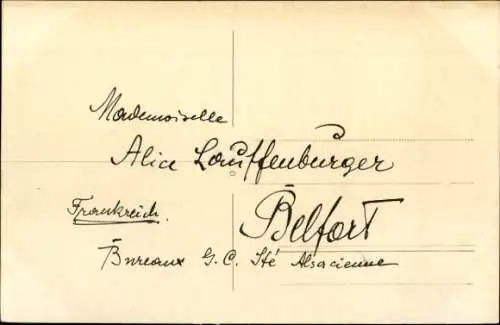 Mademoiselle
Alice Lauffenburger
Belfort
Frankreich.
Bureaux G. C. Sté Alsacienne